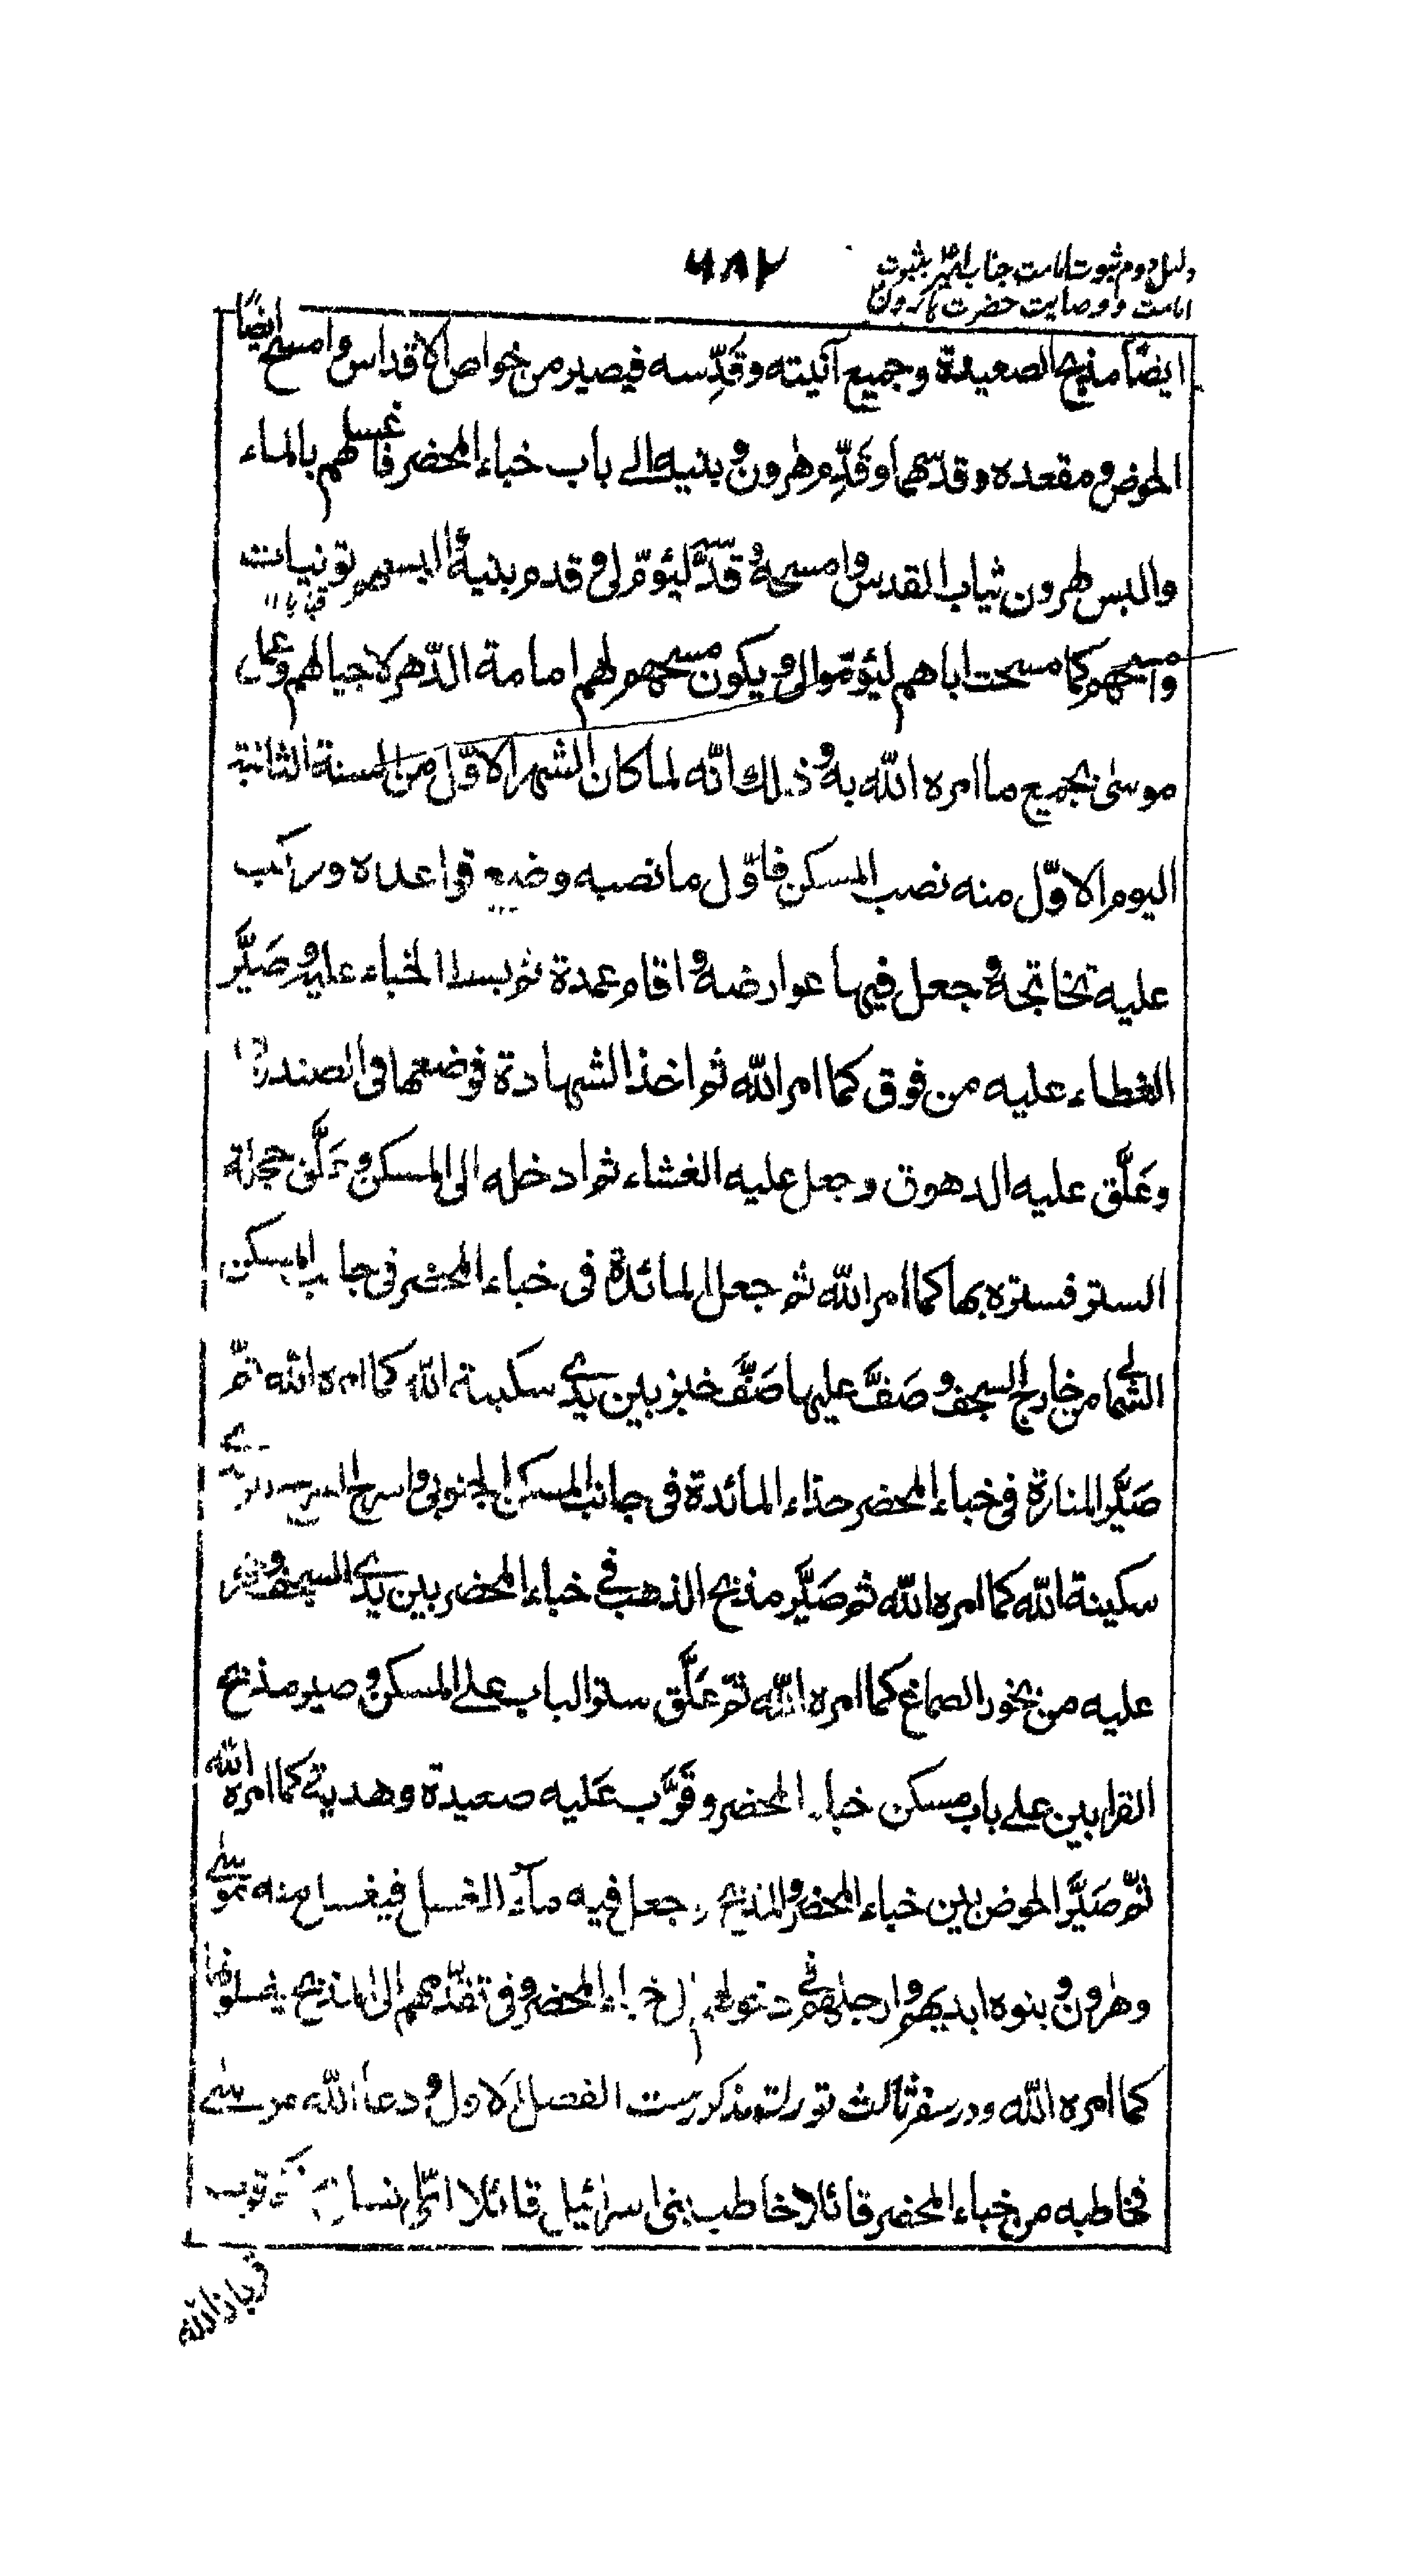 دلیل دوم ثبوت امامت جناب امیر بثبوت
۷۸۲
امامت و وصایت حضرت هارون
ایضاً مذبح الصعیدة وجمیع آنیته وقَدِّسه فیصیر من خواص الاقداس وامسح ایضًا
الحوض و مقعده وقدّسهما وقَدِّم هٰرون و بنیه الے باب خباء المحضر فاغسلهم بالماء
والبس هٰرون ثیاب القدس وامسحه و قدّسه لیؤمّ لی و قدم بنیه و البسهم تونیات
وامسحهم کما مسحت اباهم لیؤمّوا لی و یکون مسحهم لهم امامة الدّهر لاجیالهم وعمل
موسٰی بجمیع ما امره الله به و ذلك انّه لما کان الشهر الاوّل من السنة الثانیة
الیوم الاوّل منه نصب المسکن فاوّل ما نصبه وضع قواعده ورکب
علیه تخاتجه و جعل فیها عوارضه و اقام عمدة ثم بسط الخباء علیه و صَیَّر
الغطاء علیه من فوق کما امر الله ثم اخذ الشهادة فوضعها فی الصندوق
وعَلَّق علیه الدهوق وجعل علیه الغشاء ثم ادخله الی المسکن و عَلَّق حجلة
الستر فستره بها کما امر الله ثم جعل المائدة فی خباء المحضر فی جانب المسکن
الشمالی من خارج السجف و صَفَّ علیها صَفَّ خبز بین یدی سکینة الله کما امره الله ثمّ
صَیَّر المنارة فی خباء المحضر حذاء المائدة فی جانب المسکن الجنوبی و اسرج
سکینة الله کما امره الله ثم صَیَّر مذبح الذهب فی خباء المحضر بین یدی السجف و
علیه من بخور الصماغ کما امره الله ثمّ عَلَّق ستر الباب علے المسکن و صیر مذبح
القرابین علے باب مسکن خباء المحضر وقَرَّب عَلیه صعیدة وهدیة کما امره الله
ثمّ صَیَّر الحوض بین خباء المحضر و المذبح وجعل فیه مآء الغسل فیغسل منه موسٰے
وهٰرون و بنوه ایدیهم و ارجلهم فی دخولهم الی خباء المحضر و فی تقدّمهم الی المذبح یغسلونها
کما امره الله ودر سفر ثالث تورات مذکورست الفصل الاول و دعا الله موسٰے
فخاطبه من خباء المحضر قائلا خاطب بنی اسرائیل قائلا ایّ انسان
قربانا لله